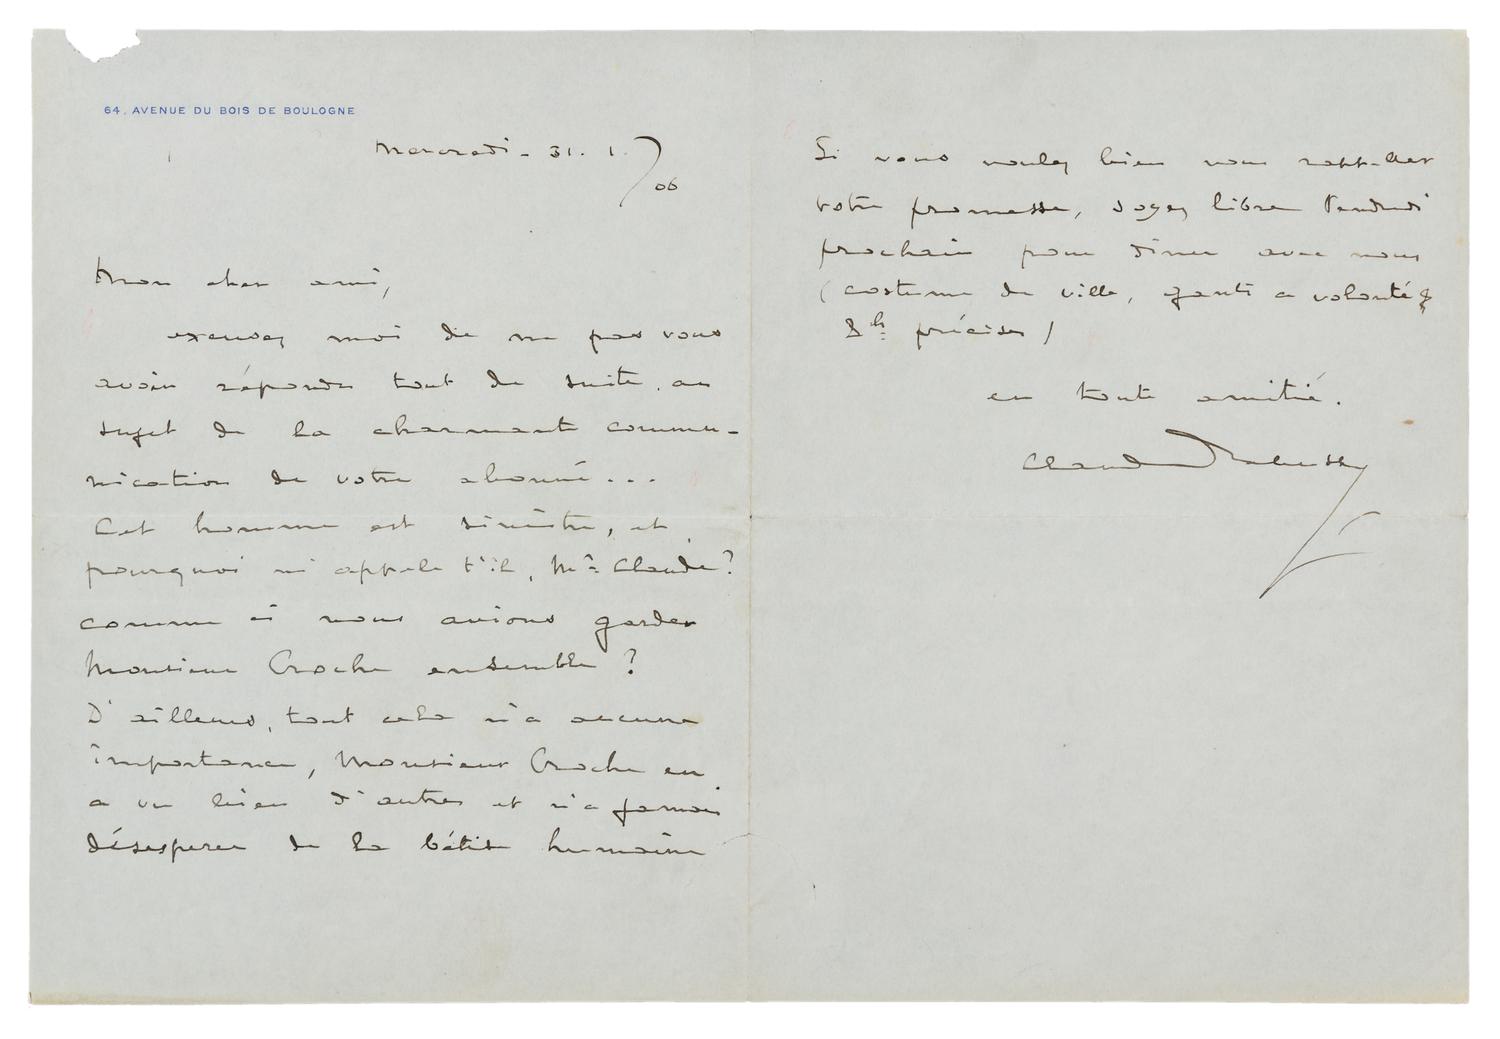 64, AVENUE DU BOIS DE BOULOGNE
Mercredi - 31. 1. 06
Mon cher ami,
excusez moi de ne pas vous
avoir répondu tout de suite, au
sujet de la charmante commu-
nication de votre abonné...
Cet homme est sinistre, et
pourquoi m'appele t'il, Mr Claude?
comme si nous avions garder
Monsieur Croche ensemble ?
D'ailleurs, tout cela n'a aucune
importance, Monsieur Croche en
a vu bien d'autres et n'a jamais
désesperer de la bétise humaine
Si vous voulez bien nous rappeller
votre promesse, soyez libre Vendredi
prochain pour diner avec nous
(costume de ville, ganté a volonté &
8h précises)
en toute amitié.
Claude Debussy